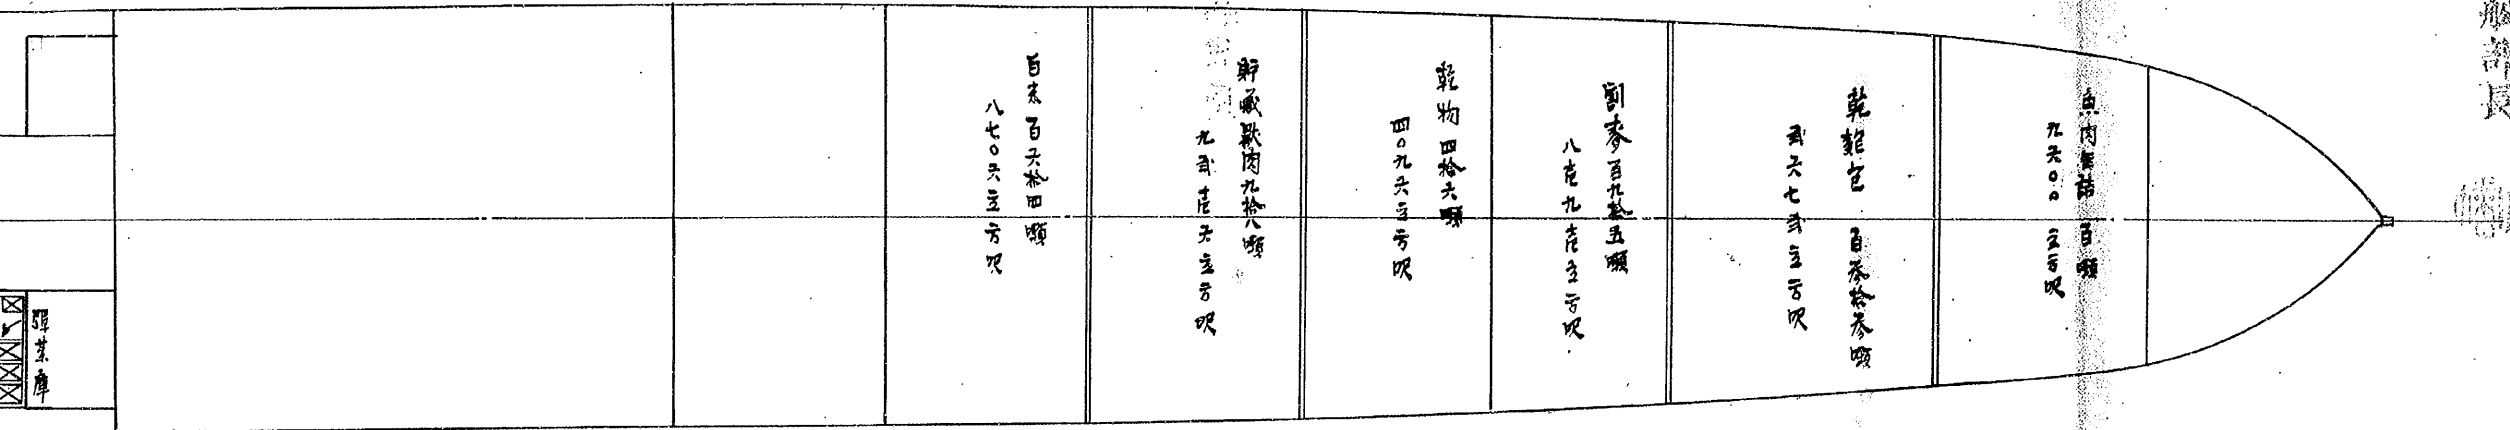 船部長
魚肉缶詰 百噸
九六〇〇 立方呎
乾麺包 百参拾参噸
弐六七弐立方呎
割麥百九拾五噸
八壱九壱立方呎
乾物 四拾六噸
四〇九六立方呎
貯蔵獣肉九拾八噸
九弐壱六立方呎
白米 百六拾四噸
八七〇六立方呎
弾薬庫